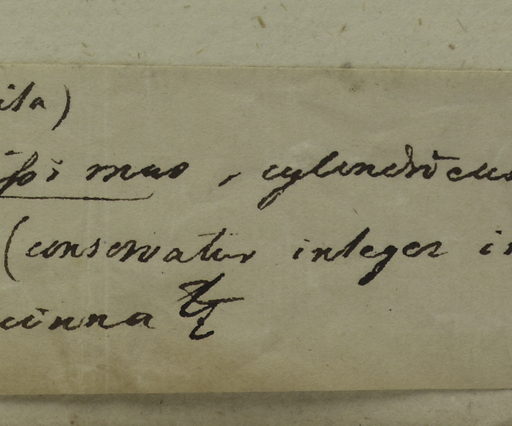 ita)
ssimus, cylindricus
(conservatur integer in
cinna